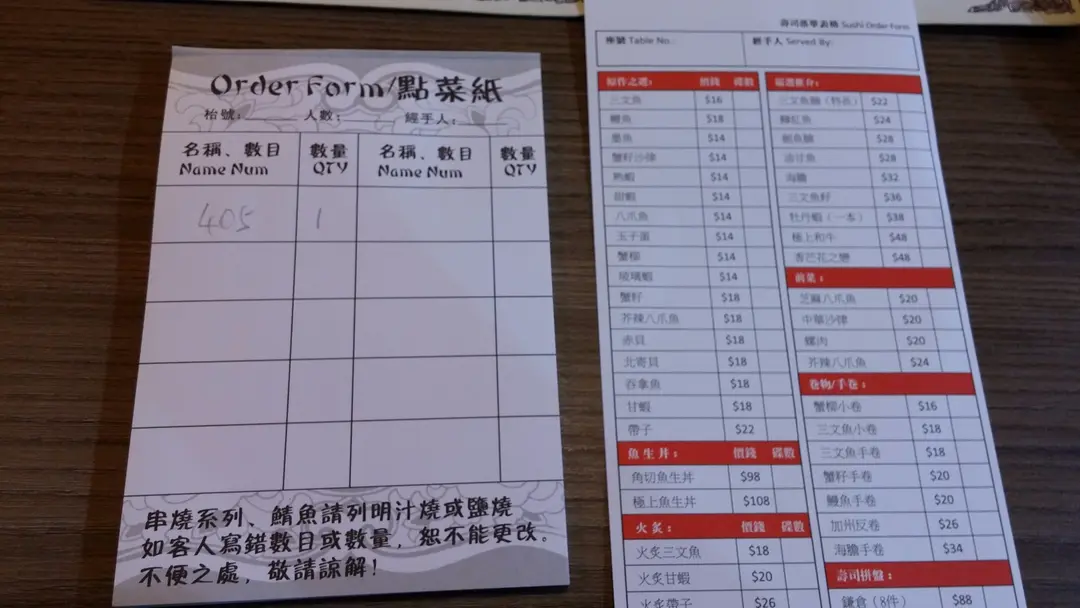 Order Form/點菜紙
枱號: 人數: 經手人:
名稱、數目 數量 名稱、數目 數量
Name Num QTY Name Num QTY
405 1
串燒系列、鯖魚請列明汁燒或鹽燒
如客人寫錯數目或數量，恕不能更改。
不便之處，敬請諒解！
壽司 Sushi Order Form
座號 Table No.: 經手人 Served By:
價錢 碟數
三文魚 $16
鰻魚 $18
墨魚 $14
蟹籽沙律 $14
熟蝦 $14
甜蝦 $14
八爪魚 $14
玉子蛋 $14
蟹柳 $14
玻璃蝦 $14
蟹籽 $18
芥辣八爪魚 $18
赤貝 $18
北寄貝 $18
吞拿魚 $18
甘蝦 $18
帶子 $22
魚生丼: 價錢 碟數
角切魚生丼 $98
極上魚生丼 $108
火炙: 價錢 碟數
火炙三文魚 $18
火炙甘蝦 $20
火炙帶子 $26
三文魚腩（特長） $22
$24
$28
油甘魚 $28
海膽 $32
三文魚籽 $36
牡丹蝦（一本） $38
極上和牛 $48
$48
前菜:
芝麻八爪魚 $20
中華沙律 $20
螺肉 $20
芥辣八爪魚 $24
卷物/手卷:
蟹柳小卷 $16
三文魚小卷 $18
三文魚手卷 $18
蟹籽手卷 $20
鰻魚手卷 $20
加州反卷 $26
海膽手卷 $34
壽司拼盤:
鎌倉（8件） $88